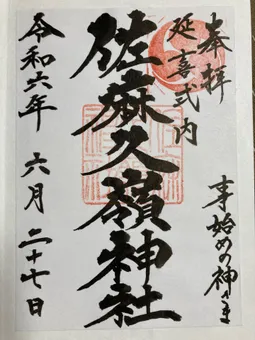 奉拝
延喜式内
事始めの神さま
佐麻久嶺神社
令和六年 六月二十七日